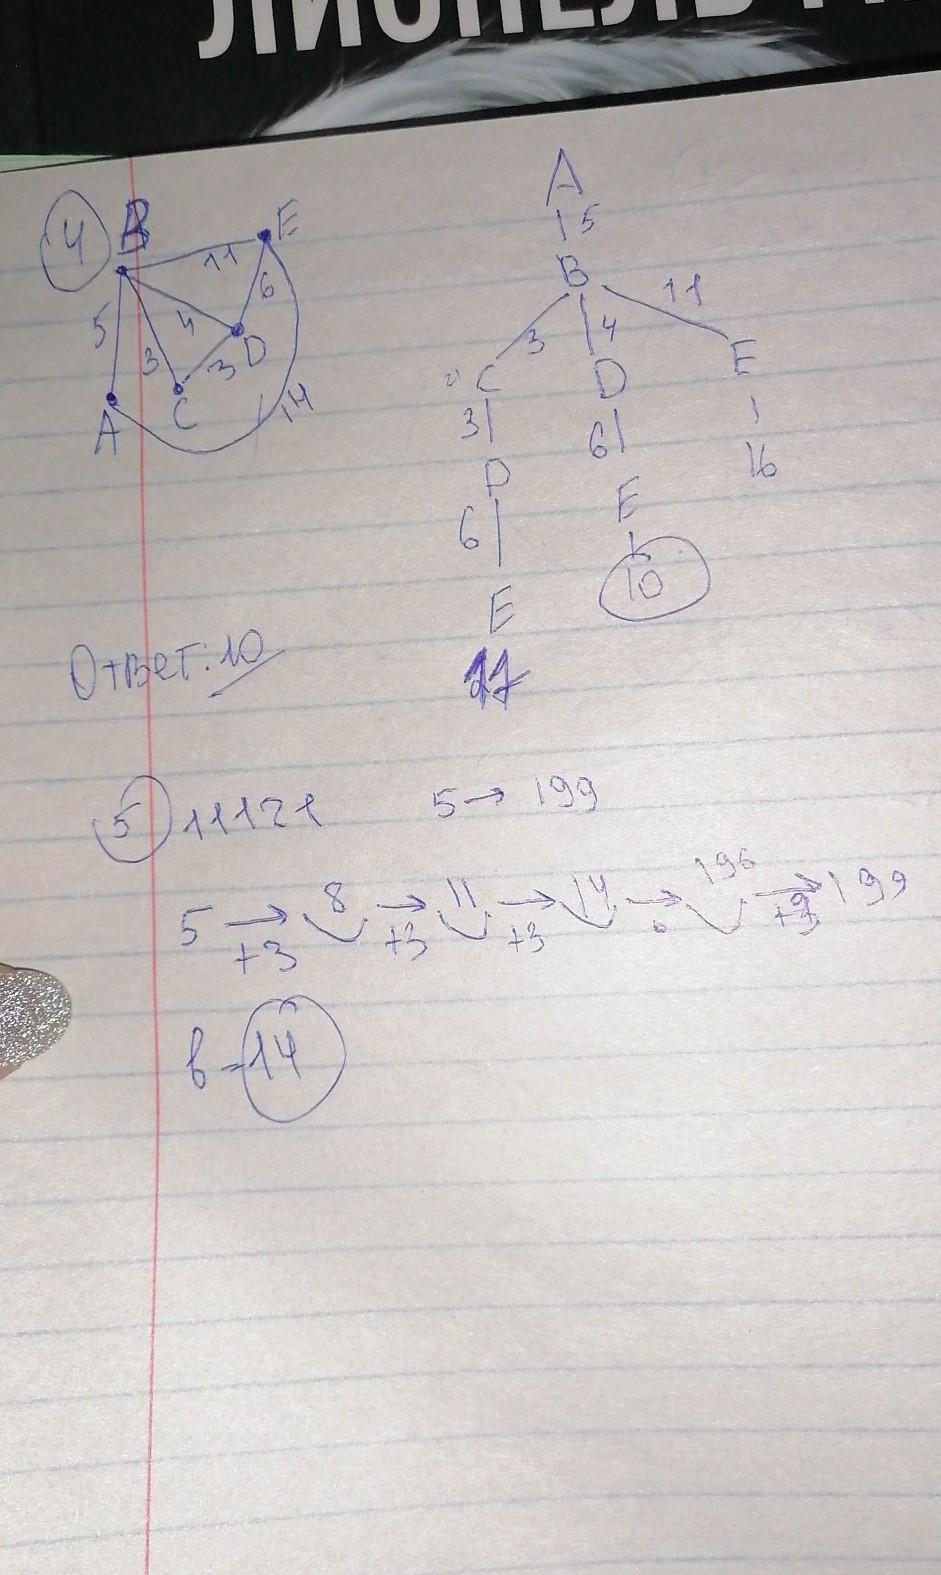 ЛИОНЕЛЬ
4
B E
11
5 3 4 6
3 D
A C 14
A
5
B
3 4 11
C D E
3 6 16
D E
6 10
E
17
Ответ: 10
5 11121 5 → 199
5 → 8 → 11 → 14 → 196 → 199
+3 +3 +3
b - 14